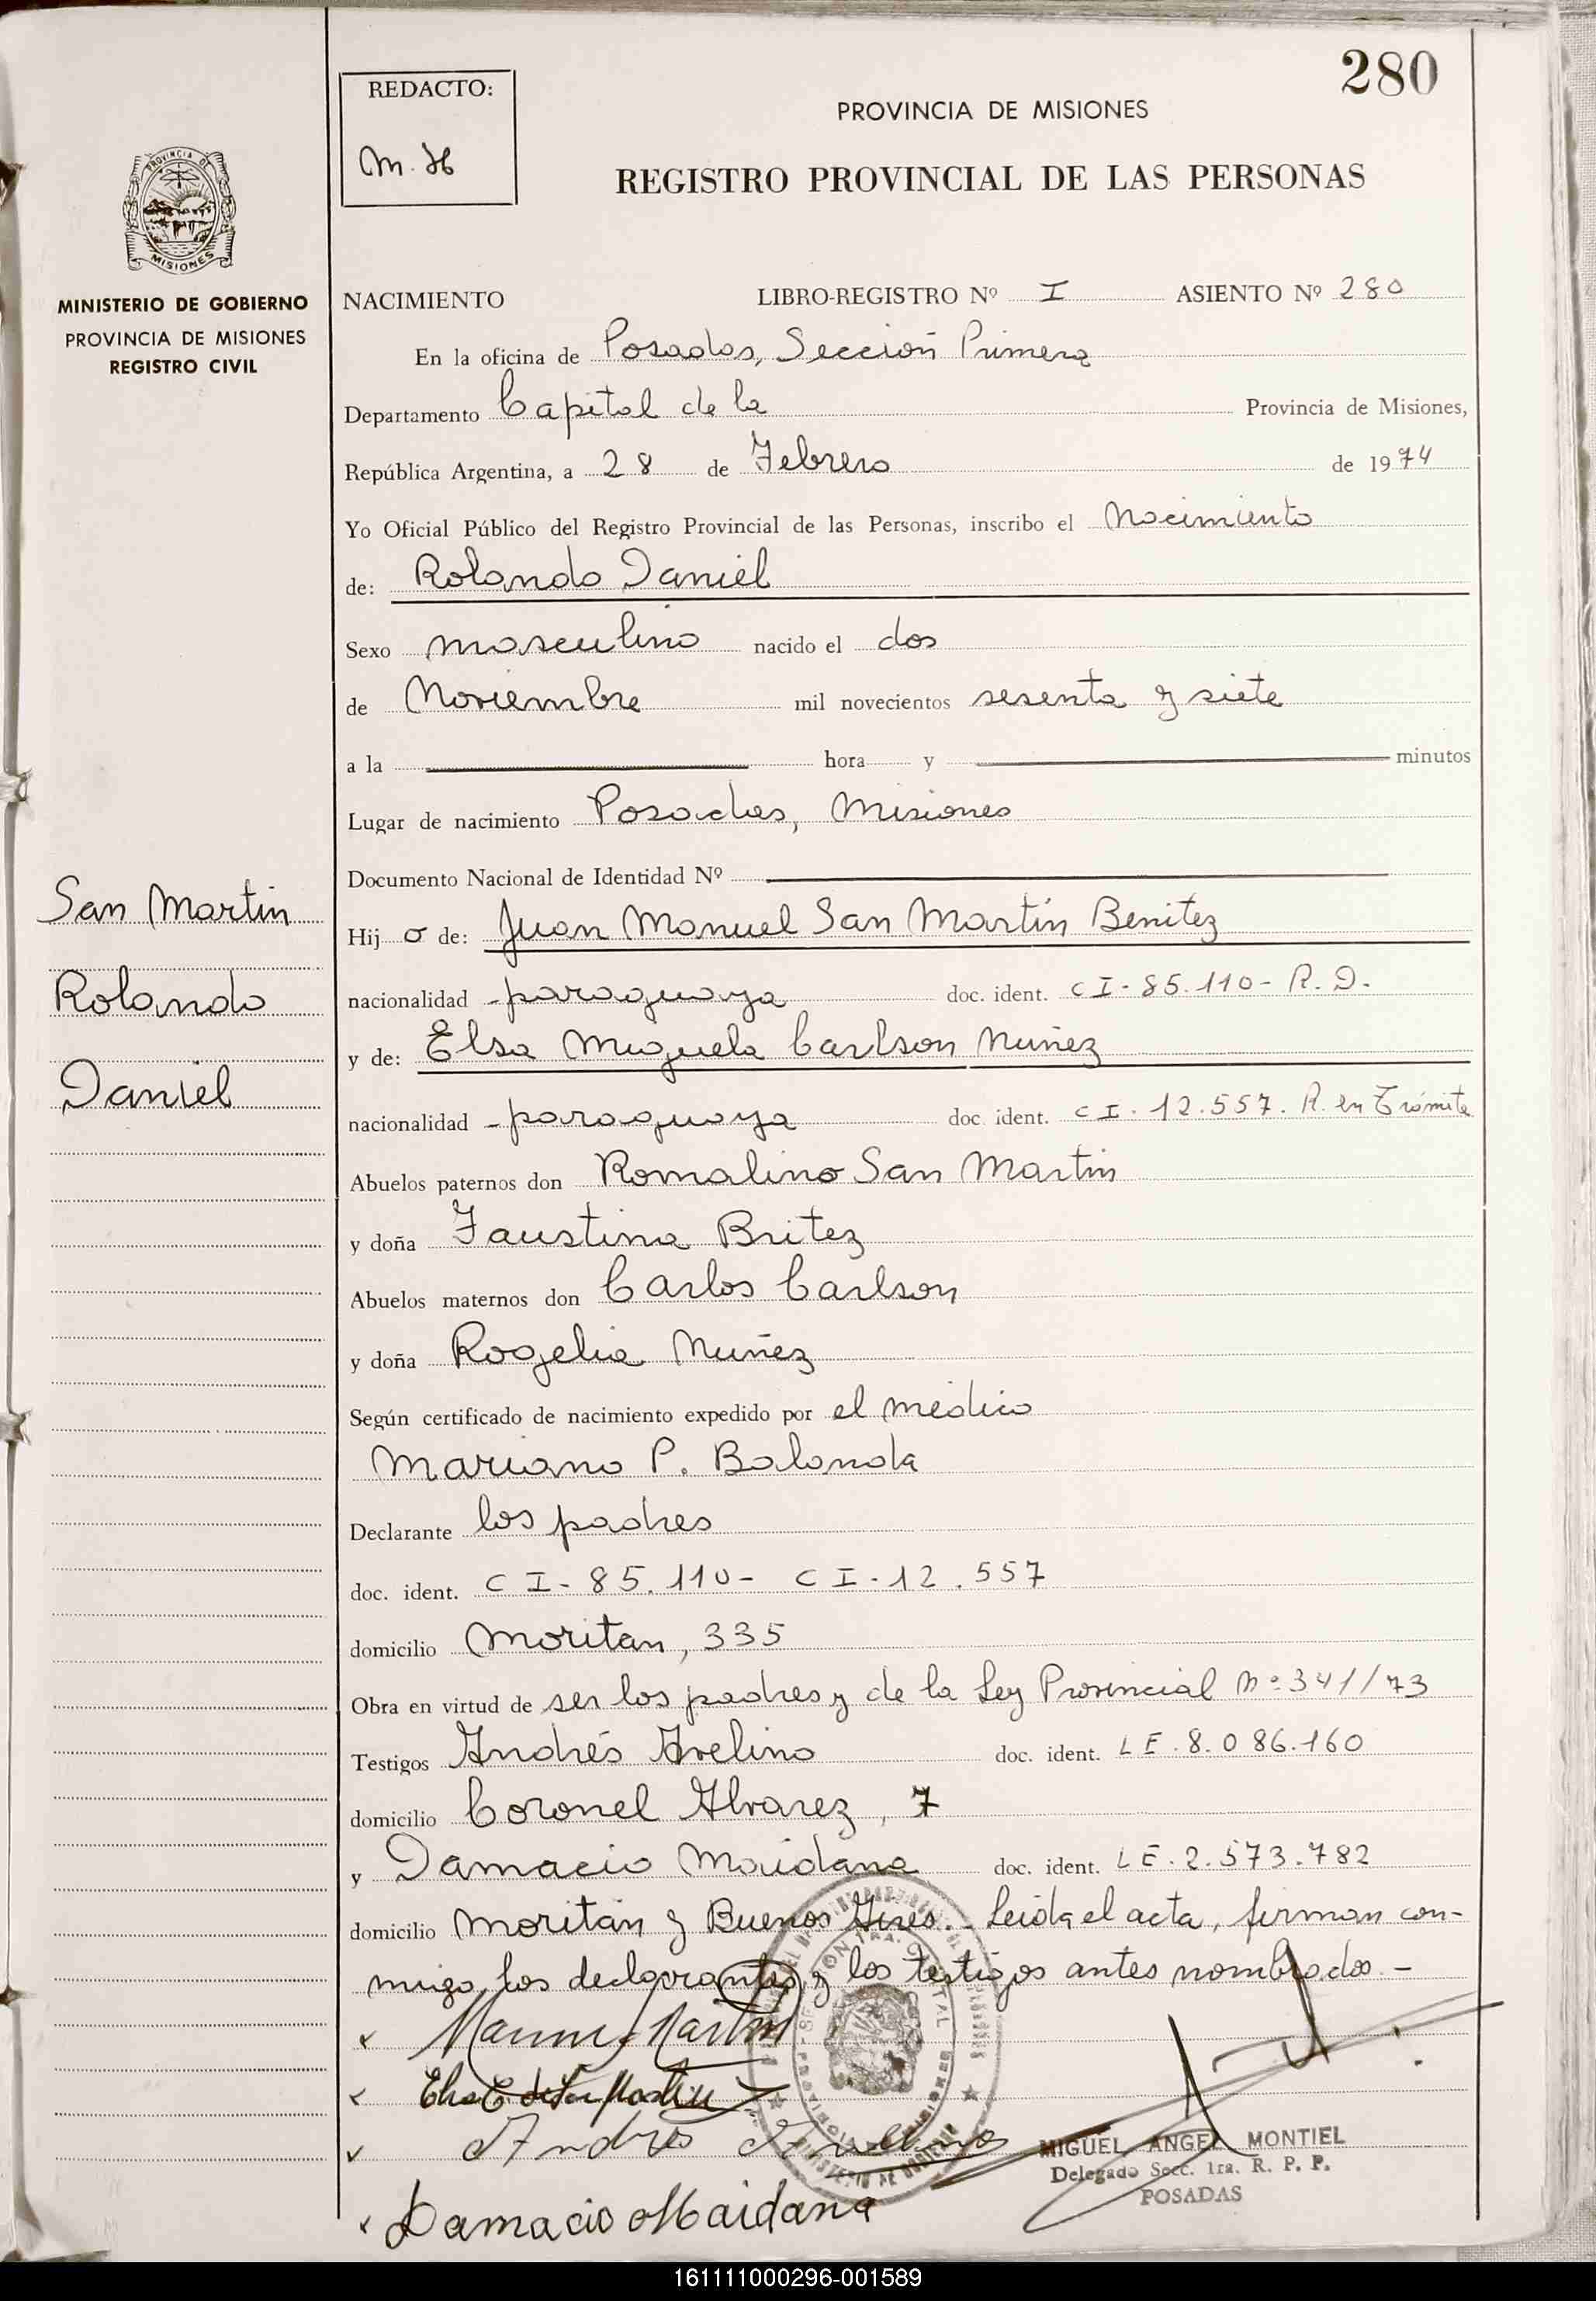 280
REDACTO:
M. H
PROVINCIA DE MISIONES
REGISTRO PROVINCIAL DE LAS PERSONAS
PROVINCIA DE
MISIONES
MINISTERIO DE GOBIERNO
PROVINCIA DE MISIONES
REGISTRO CIVIL
NACIMIENTO LIBRO-REGISTRO Nº I ASIENTO Nº 280
En la oficina de Posadas, Sección Primera
Departamento Capital de la Provincia de Misiones,
República Argentina, a 28 de Febrero de 1974
Yo Oficial Público del Registro Provincial de las Personas, inscribo el Nacimiento
de: Rolando Daniel
Sexo masculino nacido el dos
de Noviembre mil novecientos sesenta y siete
a la hora y minutos
Lugar de nacimiento Posadas, Misiones
Documento Nacional de Identidad Nº
San Martin
Rolando
Daniel
Hijo de: Juan Manuel San Martín Benitez
nacionalidad -paraguaya doc. ident. CI-85.110- P. D.
y de: Elsa Miguela Carlson Nuñez
nacionalidad -paraguaya doc. ident. CI. 12.557. R. en Trámite
Abuelos paternos don Romalino San Martin
y doña Faustina Britez
Abuelos maternos don Carlos Carlson
y doña Rogelia Nuñez
Según certificado de nacimiento expedido por el médico
Mariano P. Balanda
Declarante los padres
doc. ident. CI-85.110- CI-12.557
domicilio Moritan, 335
Obra en virtud de ser los padres y de la Ley Provincial Nº 341/73
Testigos Andrés Avelino doc. ident. LE. 8.086.160
domicilio Coronel Alvarez, 7
y Damacio Maidana doc. ident. LE. 2.573.782
domicilio Moritán y Buenos Aires.- Leída el acta, firman con-
migo los declarantes y los testigos antes nombrados.-
Elsa C de San Martin
Andrés Avelino
Damacio Maidana
MIGUEL ANGEL MONTIEL
Delegado Secc. 1ra. R. P. P.
POSADAS
161111000296-001589